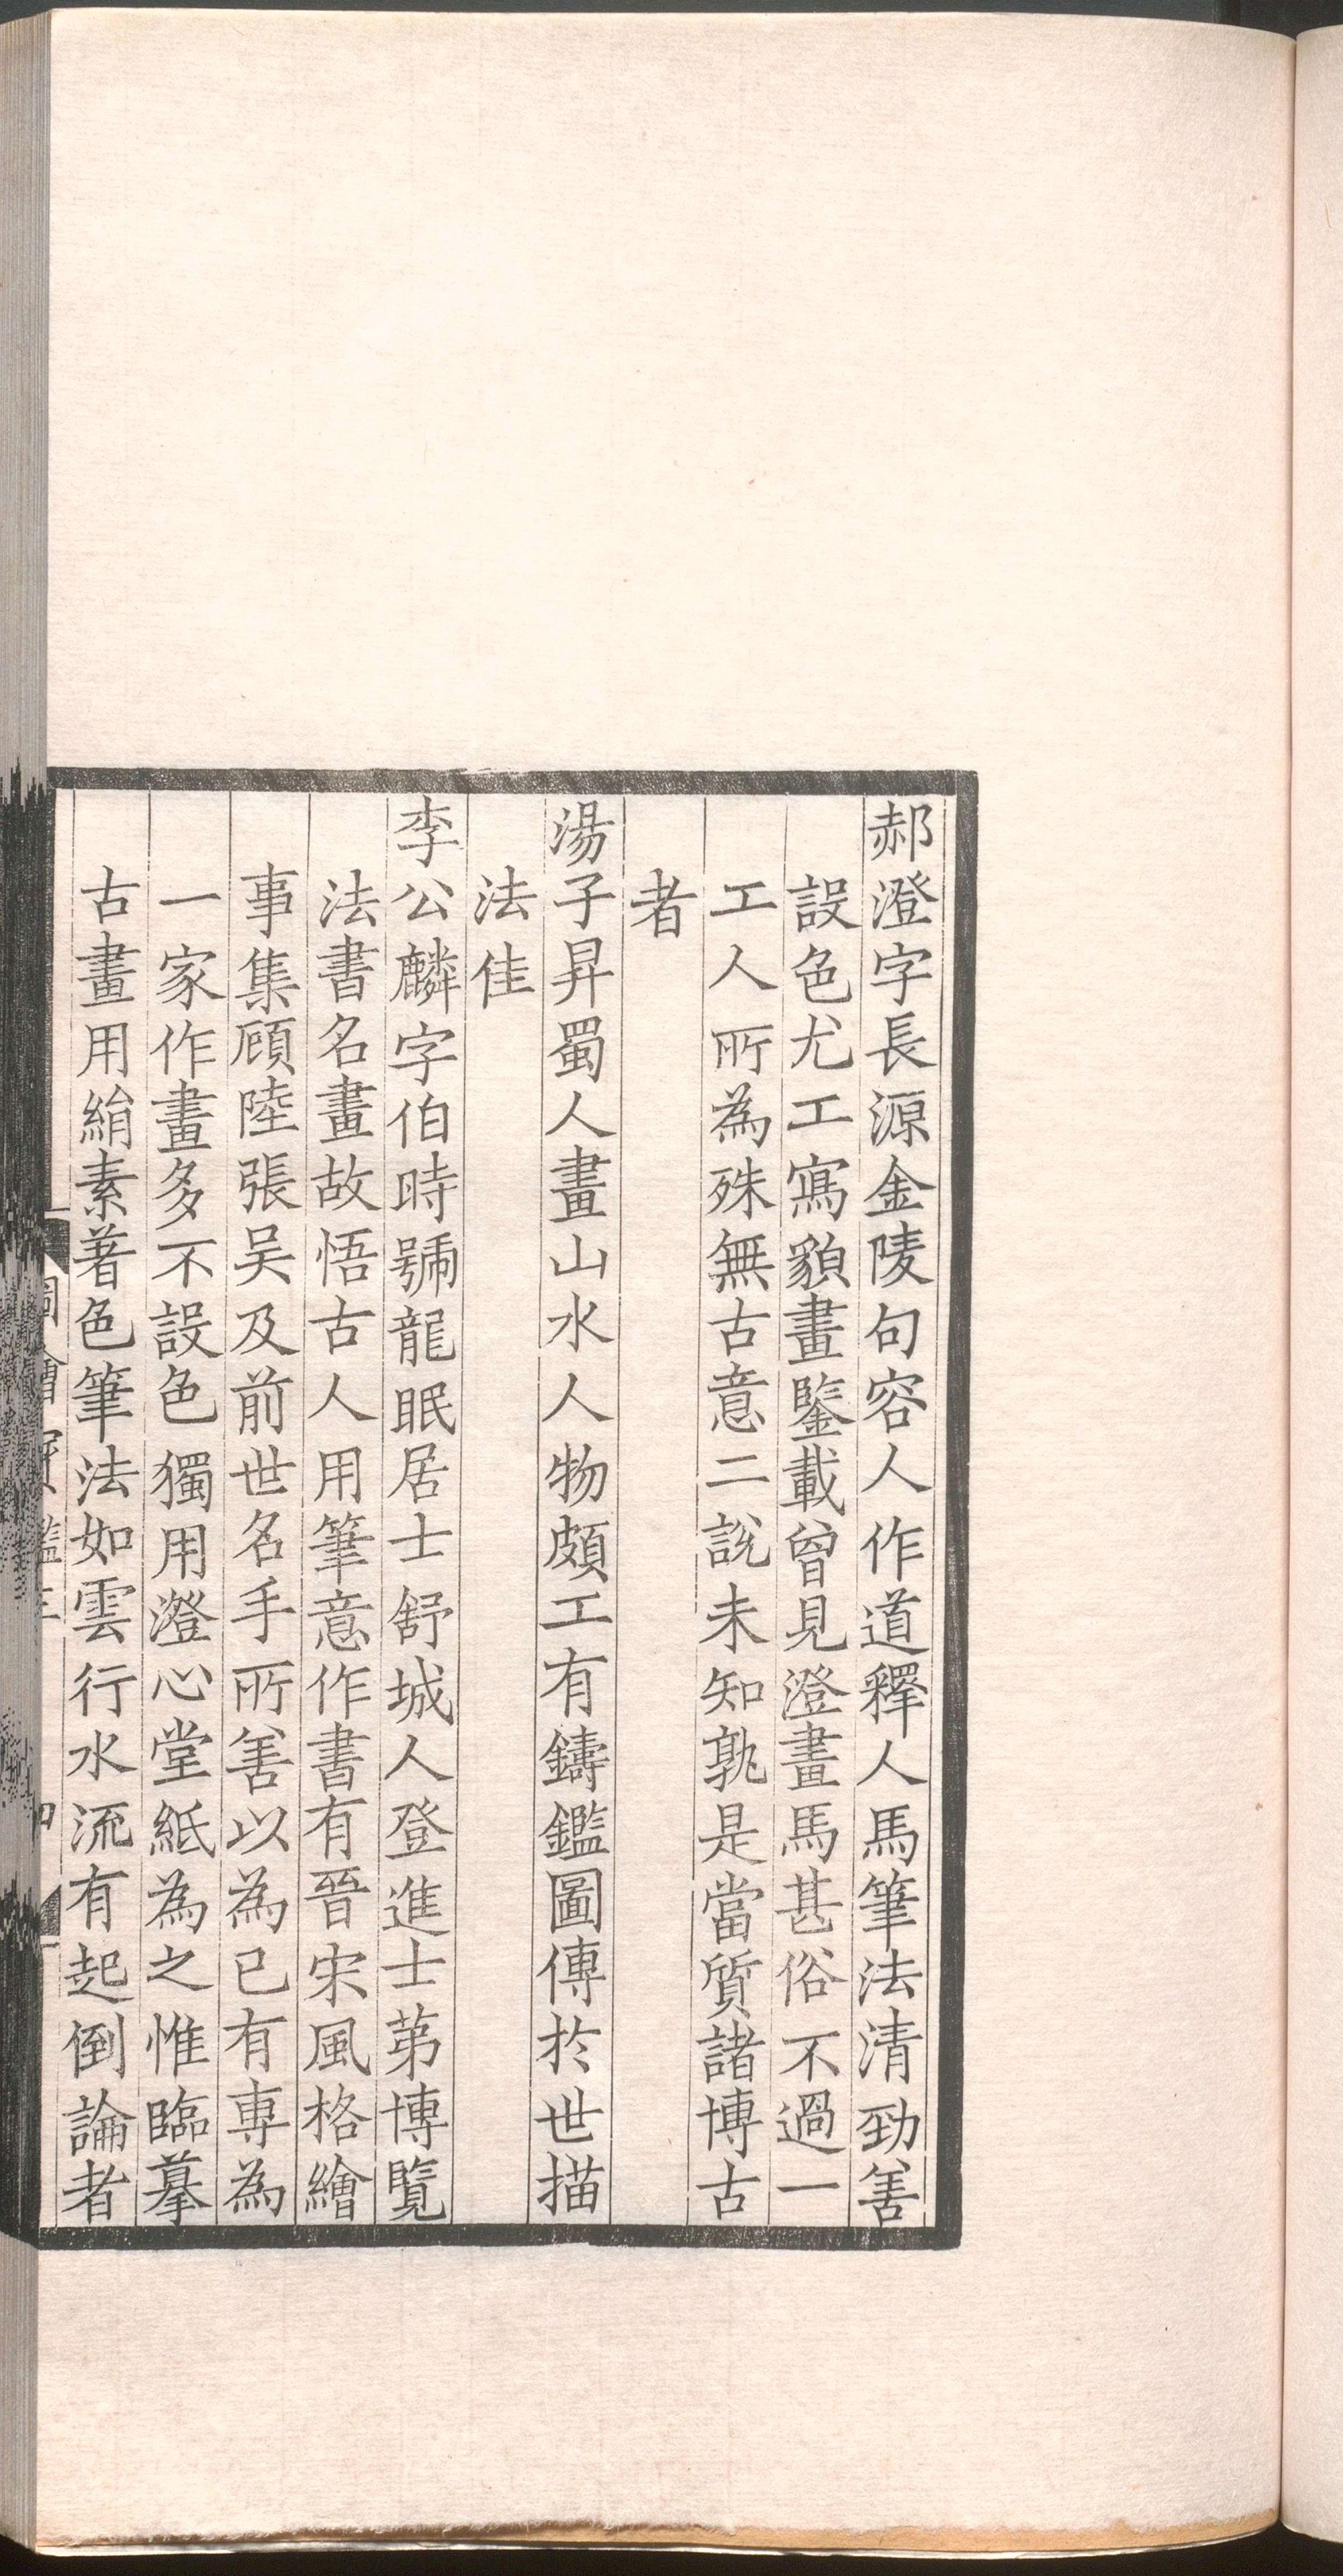 郝澄字長源金陵句容人作道釋人馬筆法清勁善
設色尤工寫貌畫鑒載曾見澄畫馬甚俗不過一
工人所為殊無古意二說未知孰是當質諸博古
者
湯子昇蜀人畫山水人物頗工有鑄鑑圖傳於世描
法佳
李公麟字伯時號龍眠居士舒城人登進士第博覽
法書名畫故悟古人用筆意作書有晉宋風格繪
事集顧陸張吳及前世名手所善以為己有專為
一家作畫多不設色獨用澄心堂紙為之惟臨摹
古畫用絹素著色筆法如雲行水流有起倒論者